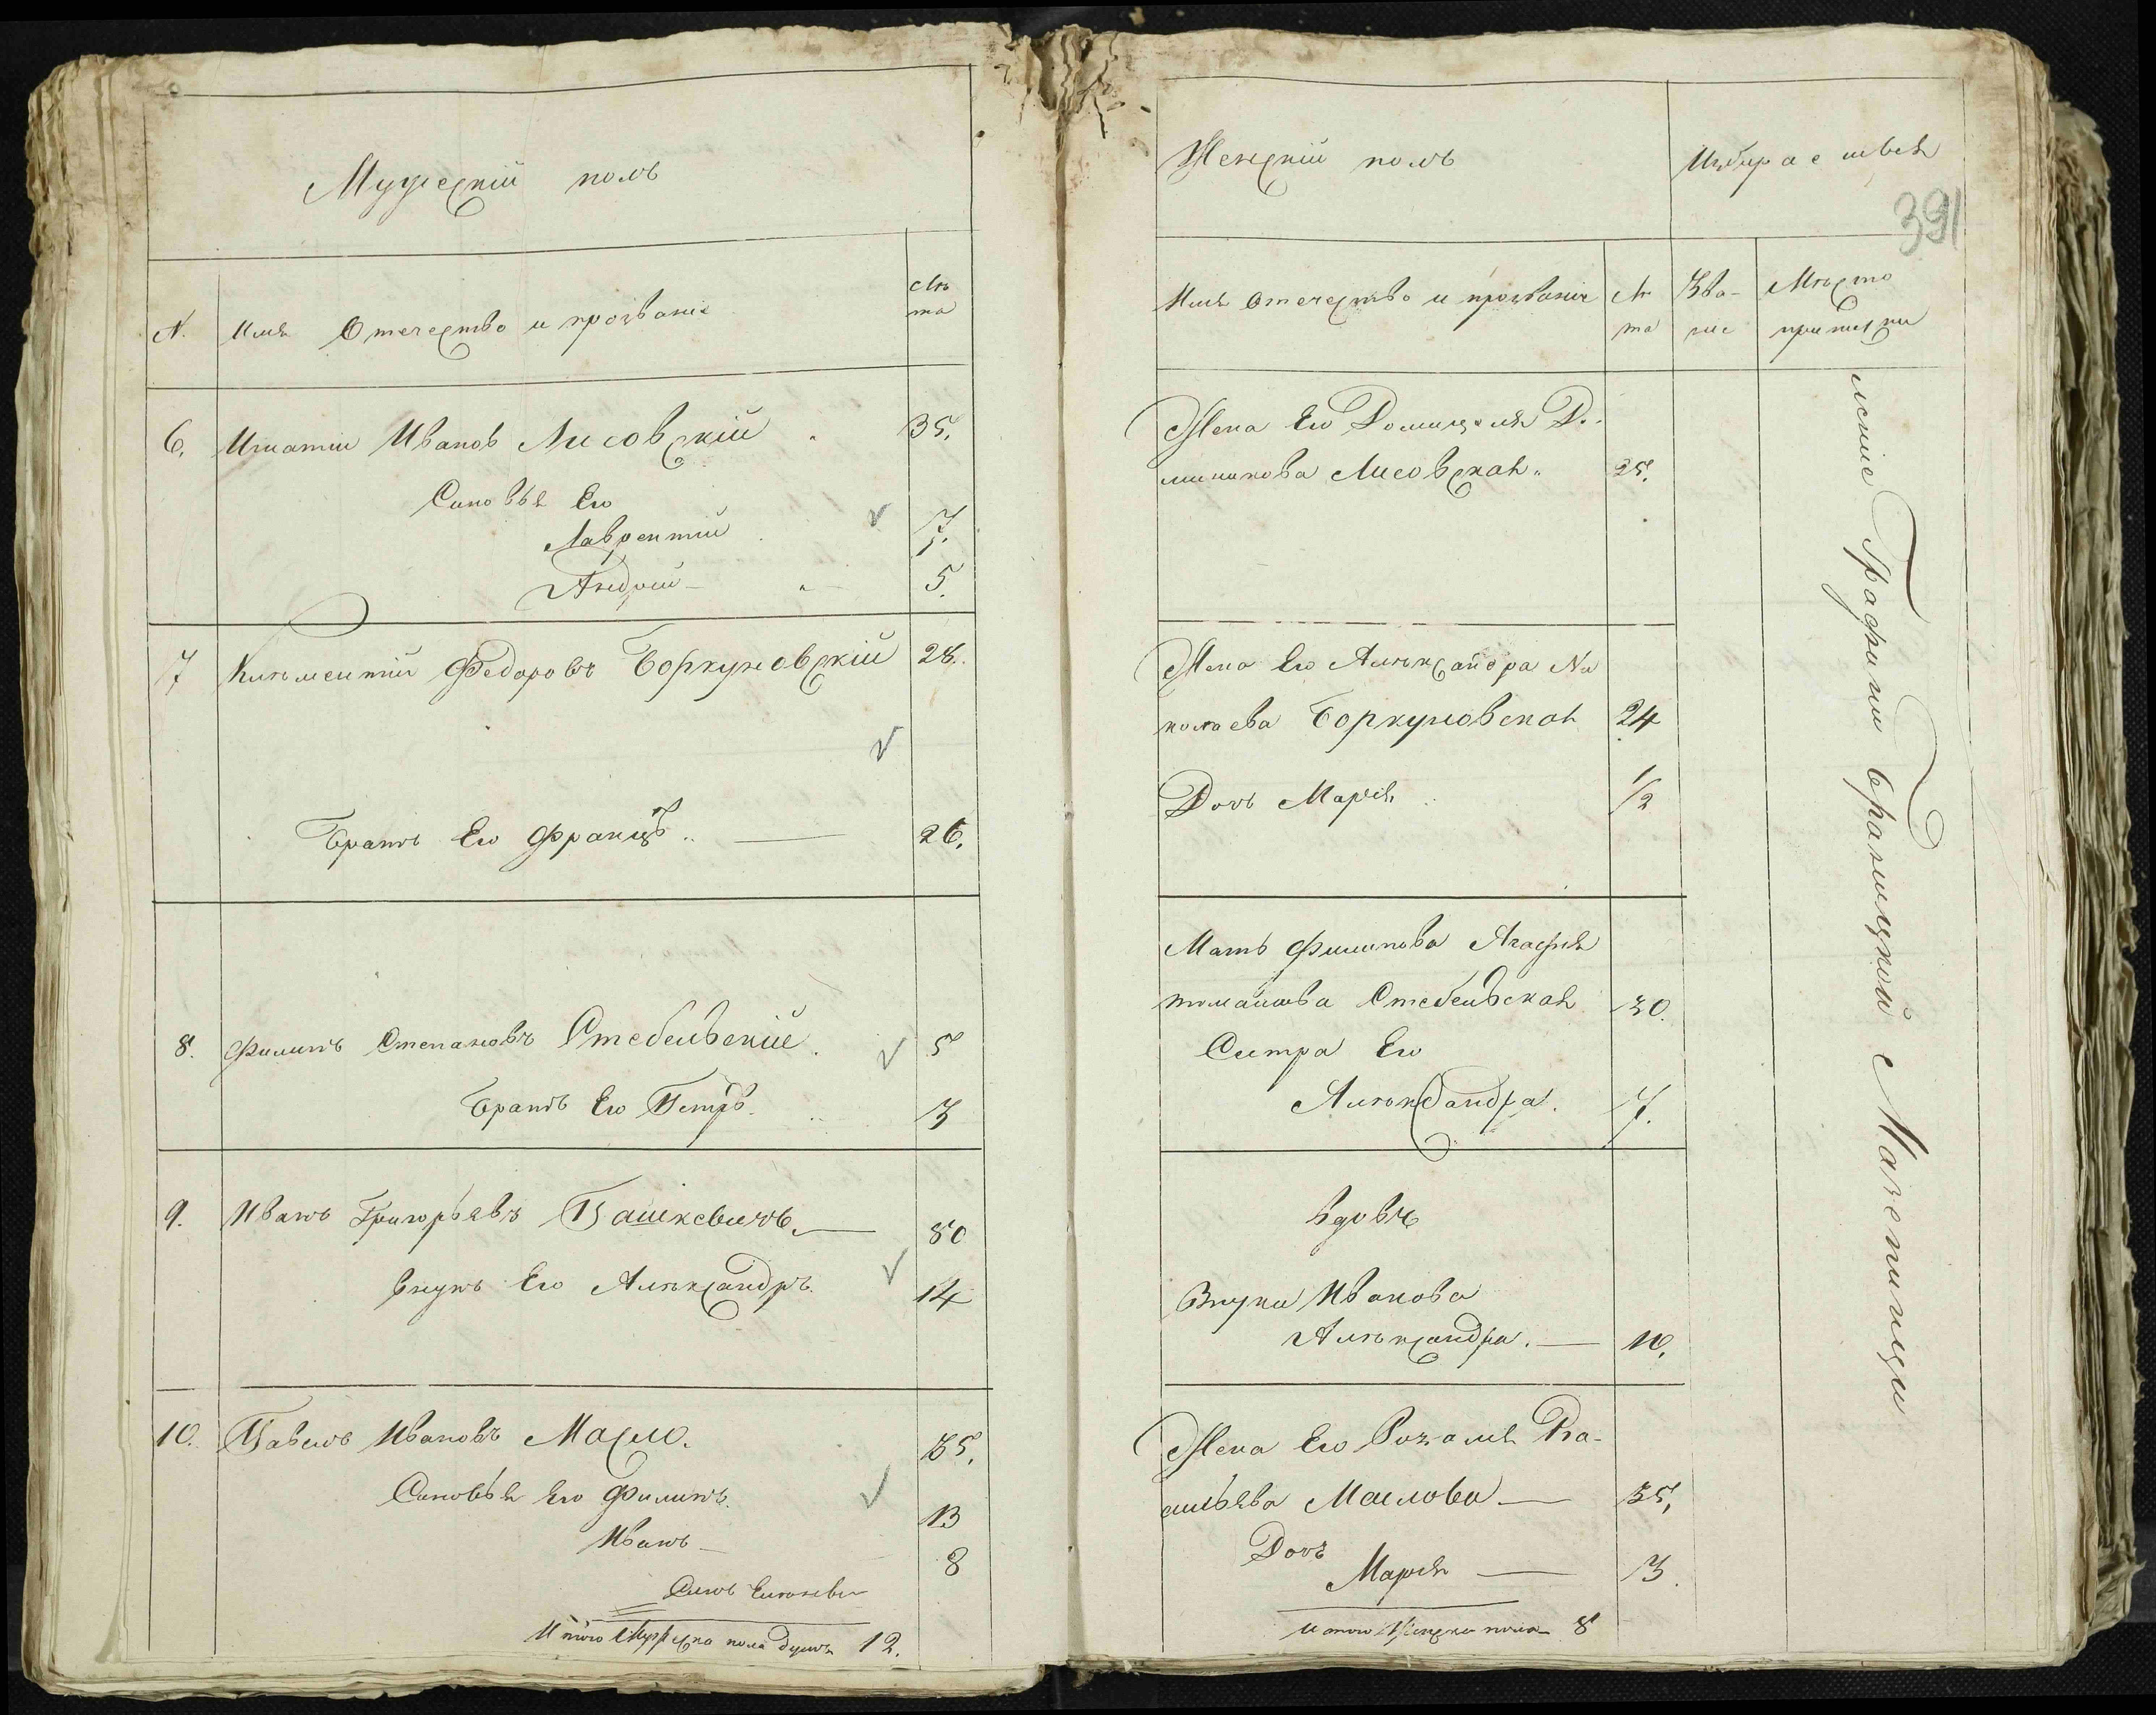 Мужескій полъ
N. Имя Отечество и прозваніе Лѣ
та
6. Игнатій Ивановъ Лисовскій 35.
Сыновья Его
Лаврентій 7.
Андрей 5.
7 Климентій Федоровъ Боркуновскій 28.
Братъ Его Францъ 26.
8. Филипъ Степановъ Стебельскій 5
Братъ Его Петръ 3
9. Иванъ Григорьевъ Пашкевичъ 80
внукъ Его Александръ 14
10. Павелъ Ивановъ Масло. 35.
Сыновья Его Филипъ 13
Иванъ 8
Итого Мужеска пола душъ 12.
Женскій полъ
391
Имя Отечество и прозваніе Лѣ
та Зва-
ніе Мѣсто
приписки
Жена Его Доминцеля До-
миникова Лисовская 25.
Жена Его Александра Ни
колаева Боркуновская 24
Дочь Марія 1/2
Мать Филипова Агафія
Стебельская 30.
Систра Его
Александра. 7.
вдовъ
Внуки Иванова
Александра. 10.
Жена Его Розалія
Маслова 35,
Дочь
Марія 3.
Итого Женска пола 8
Графини Браницкой